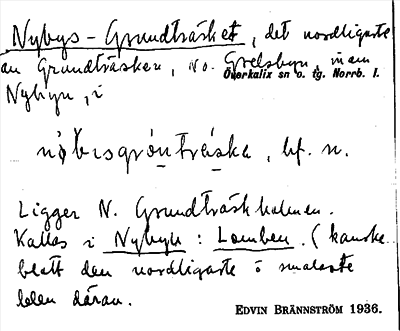 Nybys-Grundträsket, det nordligaste
av Grundträsken, no. Grelsbyn, inom
Överkalix sn o. tg. Norrb. l.
Nybyn, i
bf. n.
Ligger N. Grundträskholmen.
Kallas i Nybyn: Lomben. (kanske
blott den nordligaste o smalaste
delen därav.
EDVIN BRÄNNSTRÖM 1936.